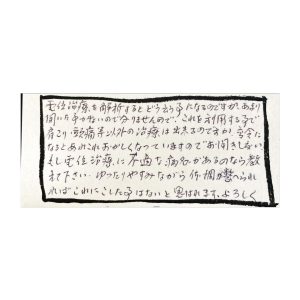 電位治療を解析するとどう云う事になるのですが、あまり
聞いた事がないので分りませんので、これを利用する事で
肩こり・頭痛等以外の治療は出来るのですか 高令に
なるとあれこれおかしくなっていますのでお聞きしたい
もし電位治療に不適な病名があるのなら教
えて下さい、ゆったりやすみながら体調が整へられ
ればこれにこした事はないと思はれます、よろしく